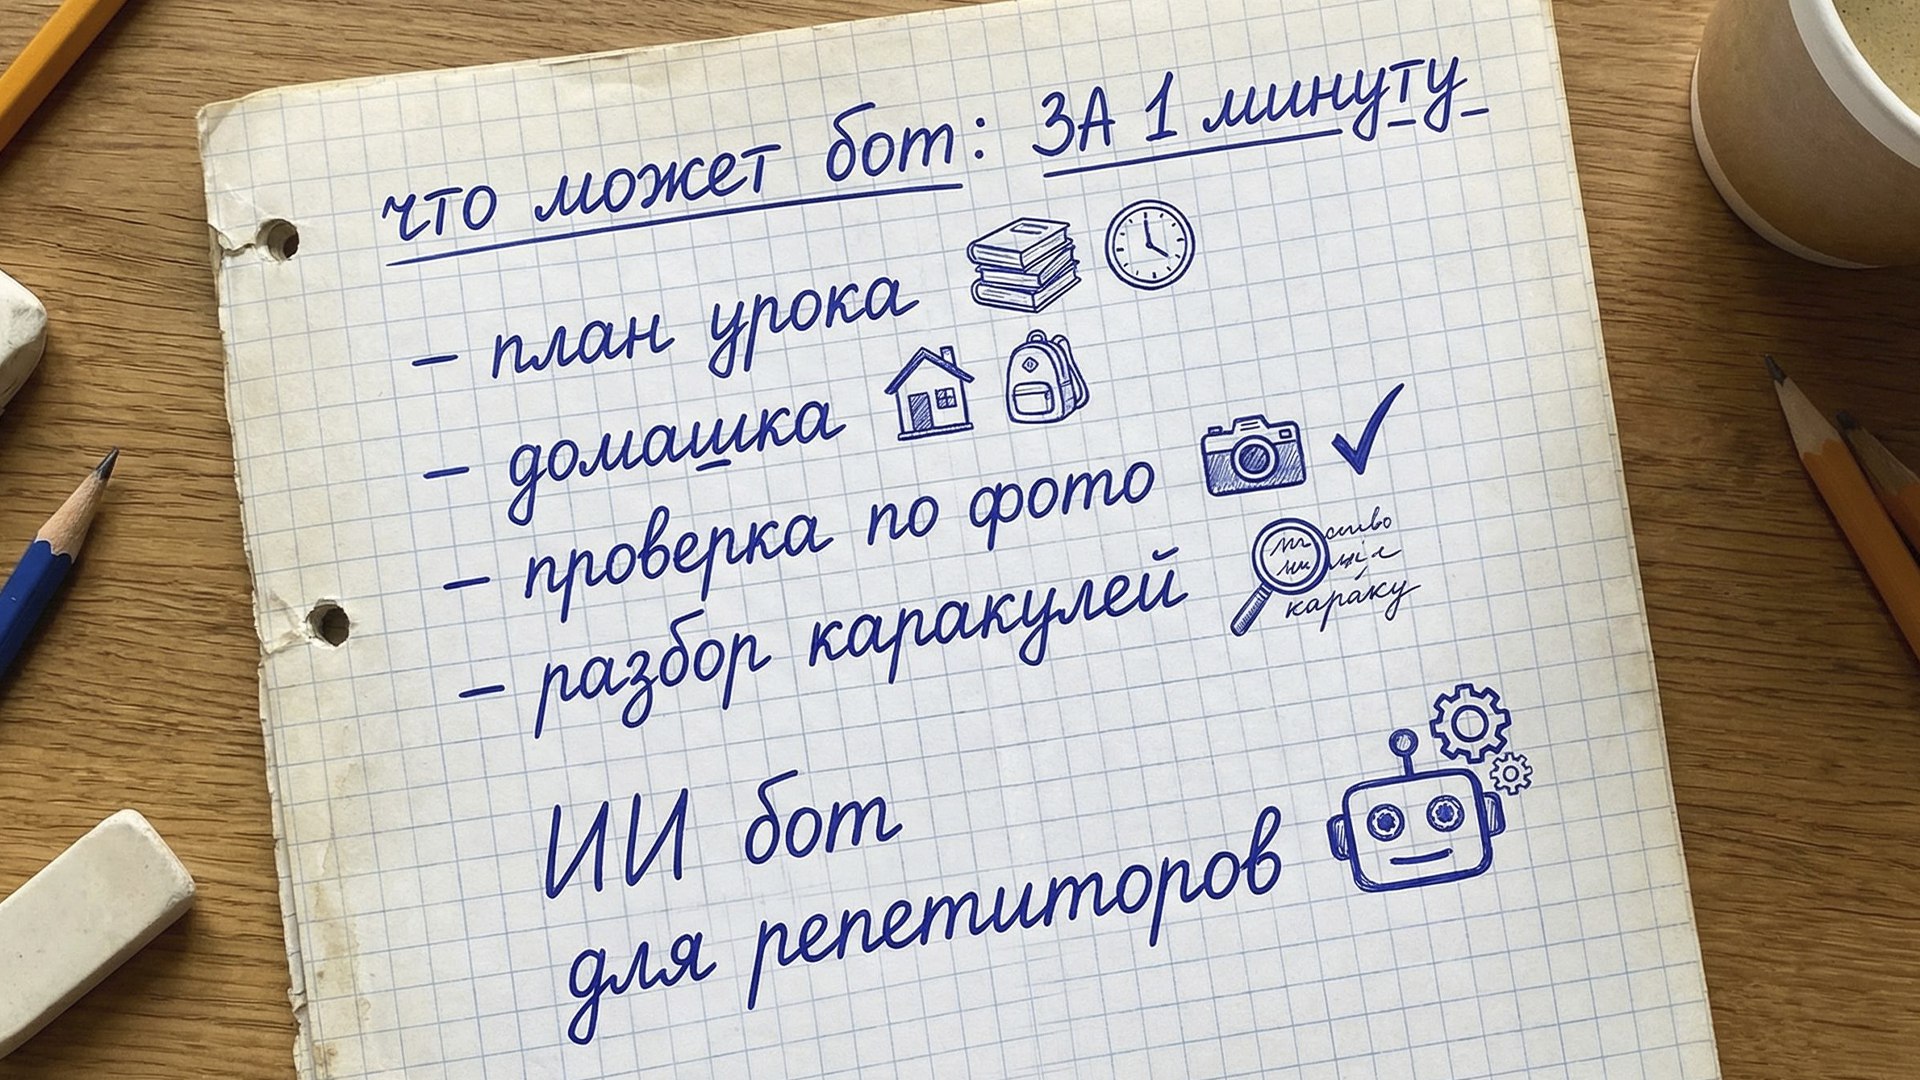 что может бот: ЗА 1 минуту
– план урока
– домашка
– проверка по фото
– разбор каракулей
караку
ИИ бот
для репетиторов